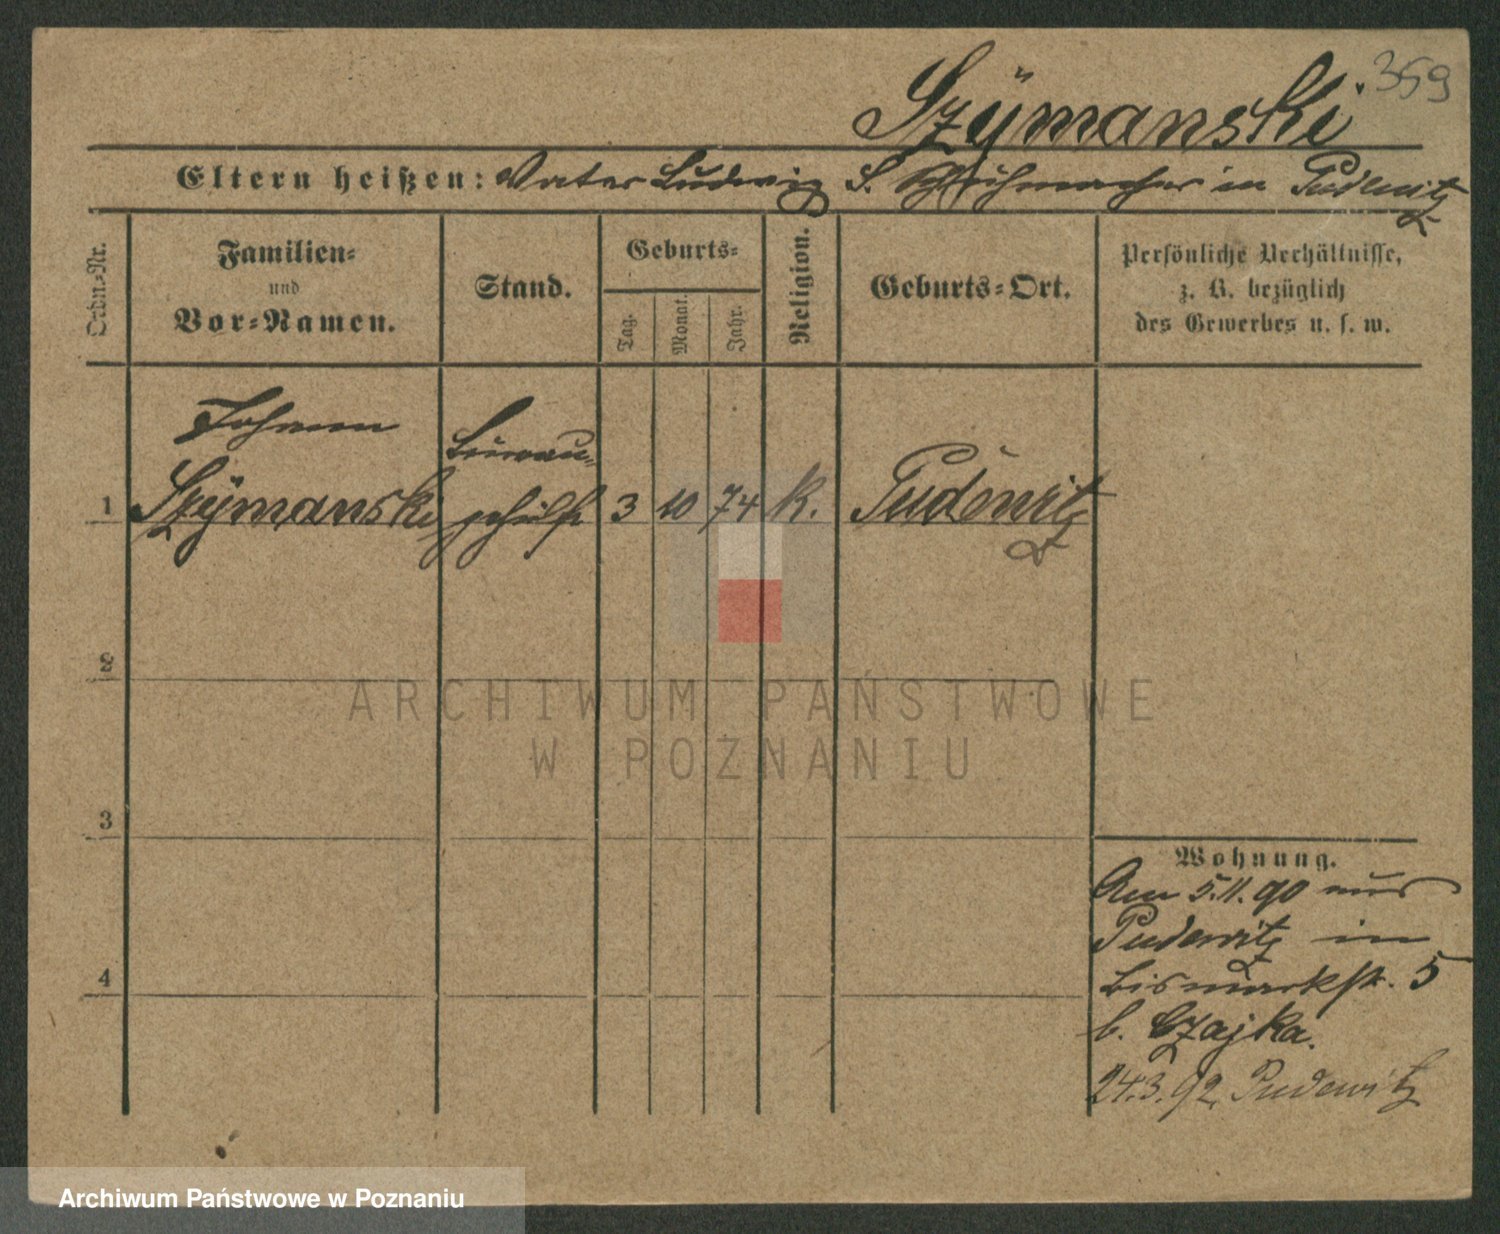 359
Szÿmanski
Eltern heißen: Vater Ludwig S. Schuhmacher in Pudewitz
Ordn.-Nr.
Familien-
und
Vor-Namen.
Stand.
Geburts-
Tag.
Monat.
Jahr.
Religion.
Geburts-Ort.
Persönliche Verhältnisse,
z. B. bezüglich
des Gewerbes u. s. w.
Johann
Büreau-
1 Szÿmanski gehülfe 3 10 74 K. Pudewitz
2
ARCHIWUM PAŃSTWOWE
W POZNANIU
3
Wohnung.
Am 5.11.90 aus
Pudewitz in
4
Bismarkstr. 5
b. Czajka.
24.3.92. Pudewitz
Archiwum Państwowe w Poznaniu